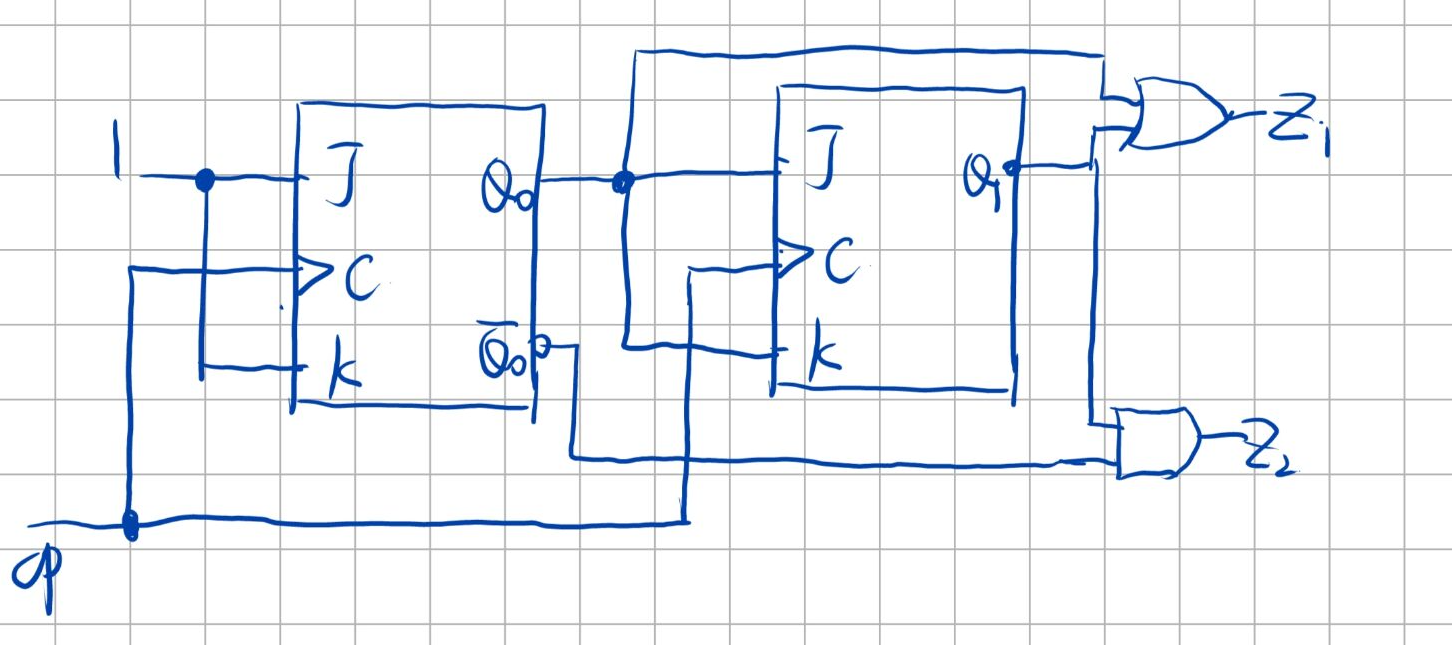 1
J
C
k
Q₀
Q̅₀
J
C
k
Q₁
Z₁
Z₂
cp